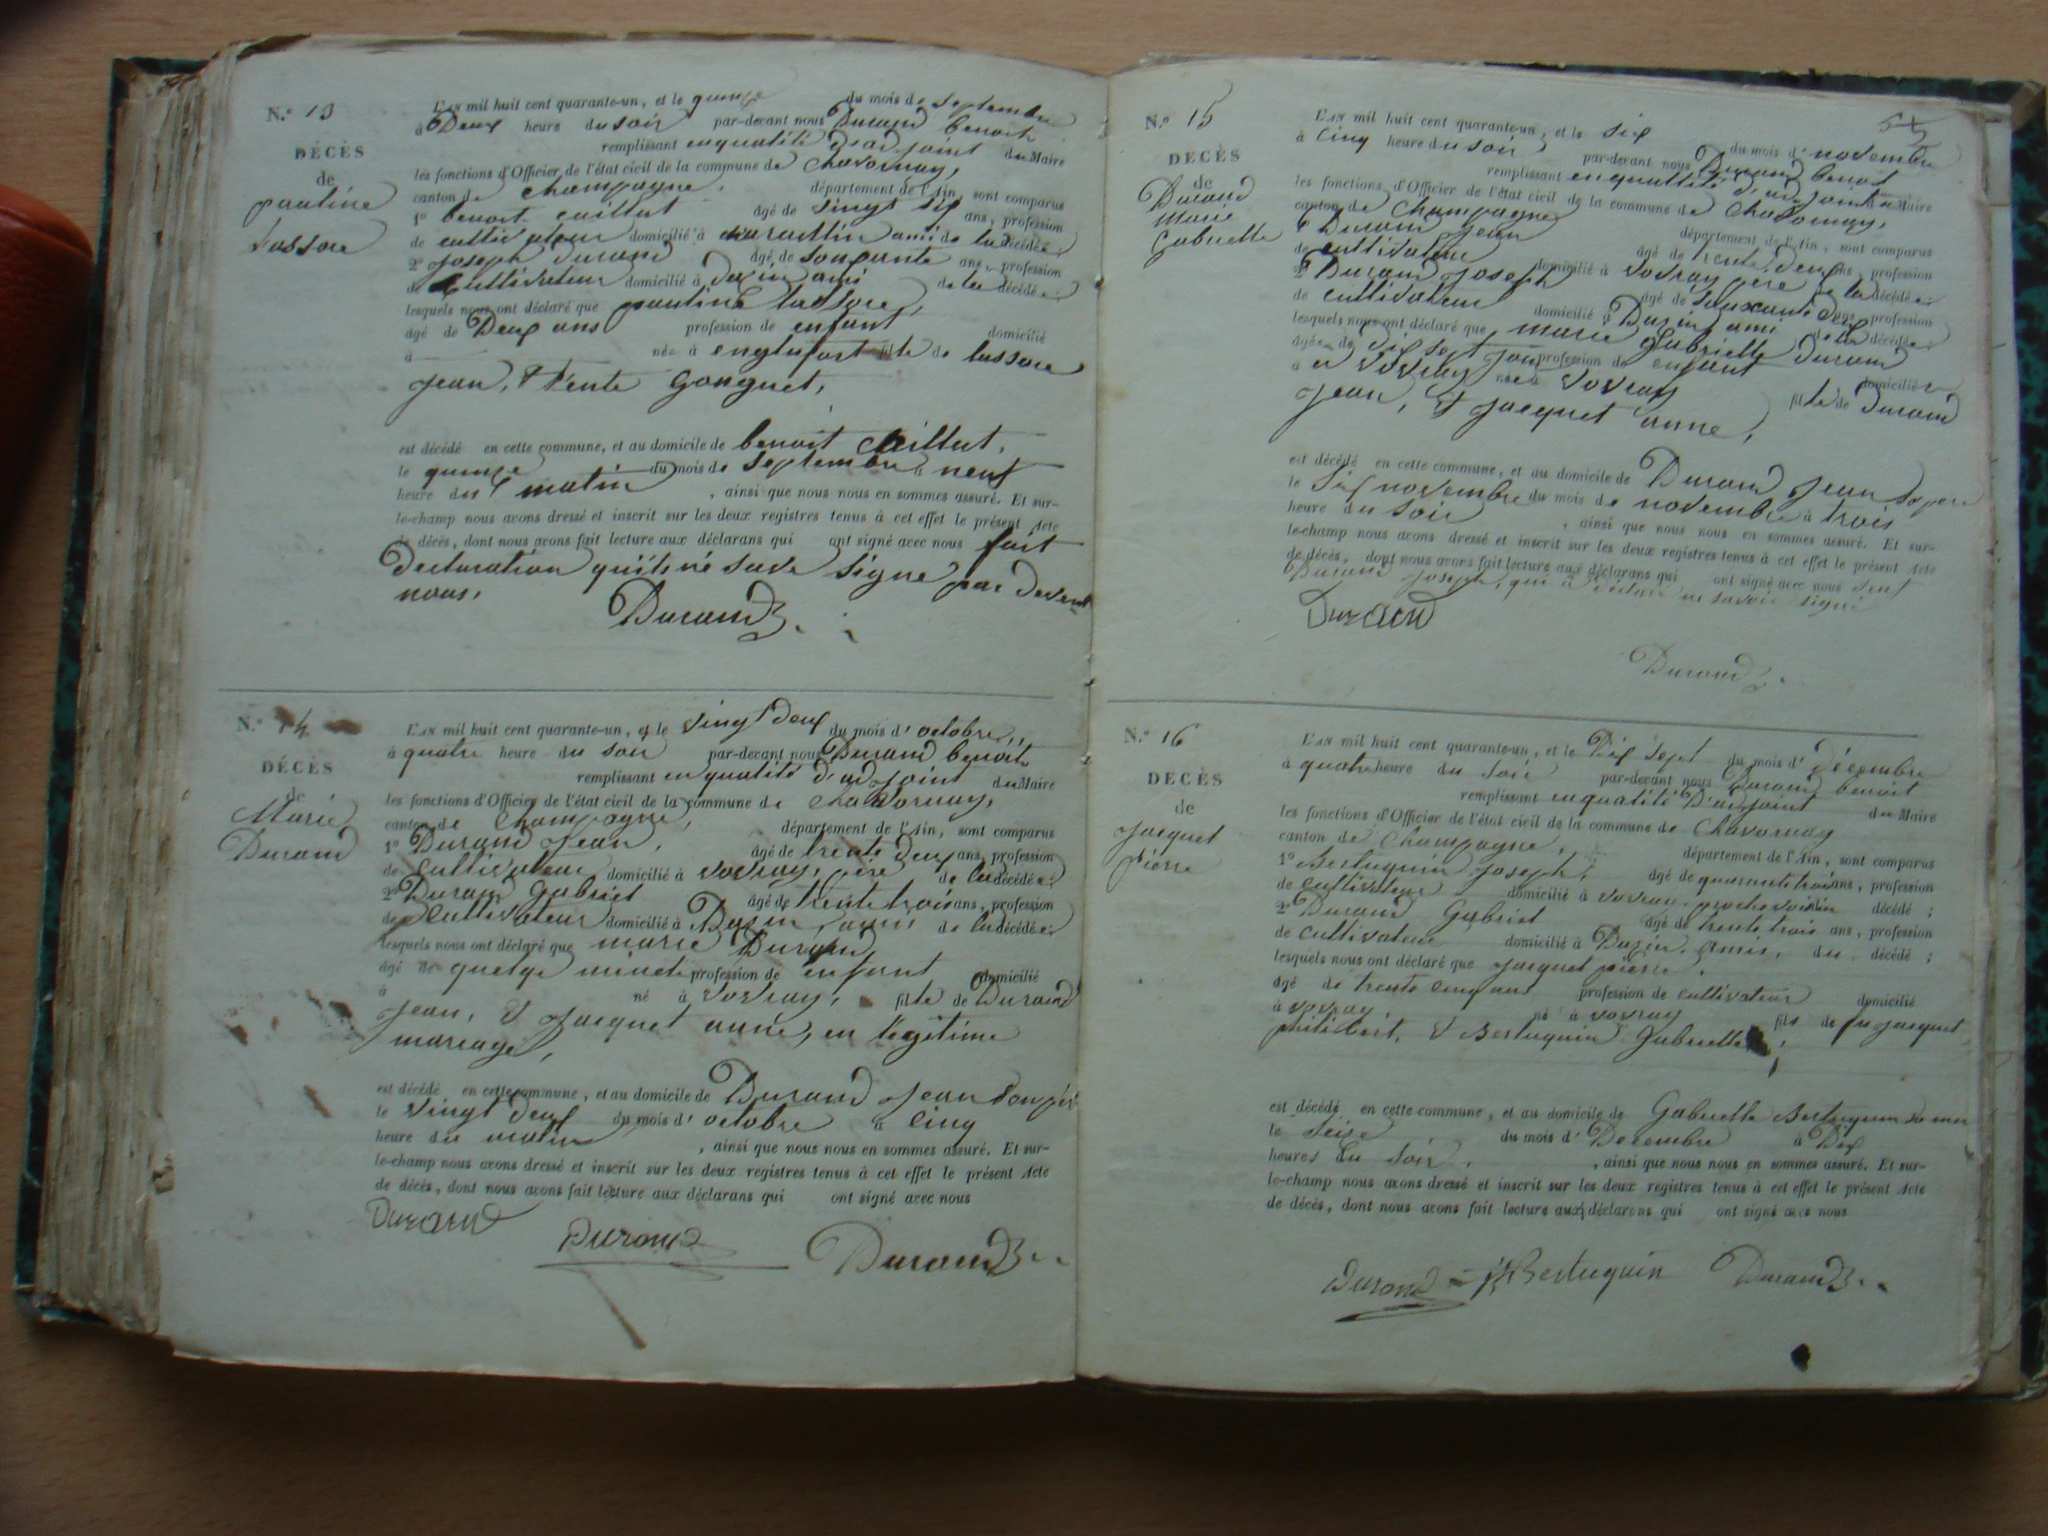 N.° 13
DÉCÈS
de
pauline
Lassore
L'AN mil huit cent quarante-un, et le quinze du mois de septembre
à Deux heure du soir par-devant nous Durand benoit
remplissant enqualité d'adjoint du Maire
les fonctions d'Officier de l'état civil de la commune de Chavornay,
canton de Champagne, département de l'Ain, sont comparus
1° benoit caillat âgé de vingt six ans, profession
de cultivateur domicilié à ami de la décédée;
2° Joseph Durand âgé de soixante ans, profession
de Cultivateur domicilié à Dazin ami de la décédée;
lesquels nous ont déclaré que pauline lassore,
âgé de Deux ans profession de enfant domicilié
à née à englufort fille de lassore
Jean, & Gonguet,
est décédé en cette commune, et au domicile de benoit Caillat,
le quinze du mois de septembre à neuf
heure du matin, ainsi que nous nous en sommes assuré. Et sur-
le-champ nous avons dressé et inscrit sur les deux registres tenus à cet effet le présent Acte
de décès, dont nous avons fait lecture aux déclarans qui ont signé avec nous fait
Declaration quils né save signe par devent
nous.
Durand
N.° 14
DÉCÈS
de
Marie
Durand
L'AN mil huit cent quarante-un, et le vingt deux du mois d'octobre,
à quatre heure du soir par-devant nous Durand benoit
remplissant enqualité d'adjoint du Maire
les fonctions d'Officier de l'état civil de la commune de Chavornay,
canton de Champagne, département de l'Ain, sont comparus
1° Durand Jean, âgé de trente deux ans, profession
de Cultivateur domicilié à vovray, père de la décédée;
2° Durand Gabriel âgé de trente trois ans, profession
de Cultivateur domicilié à Dazin, ami de la décédée;
lesquels nous ont déclaré que marie Durand
âgé de quelqe minute profession de enfant domicilié
à né à vovray, fille de Durand
Jean, & Jacquet anne, en légitime
mariage,
est décédé en cette commune, et au domicile de Durand Jean son père
le vingt deux du mois d'octobre à cinq
heure du matin, ainsi que nous nous en sommes assuré. Et sur-
le-champ nous avons dressé et inscrit sur les deux registres tenus à cet effet le présent Acte
de décès, dont nous avons fait lecture aux déclarans qui ont signé avec nous
Durand Durand Durand
N.° 15
DÉCÈS
de
Durand
Marie
Gabrielle
L'AN mil huit cent quarante-un, et le six du mois d'novembre
à cinq heure du soir par-devant nous Durand benoit
remplissant enqualité d'adjoint du Maire
les fonctions d'Officier de l'état civil de la commune de Chavornay,
canton de Champagne département de l'Ain, sont comparus
1° Durand Jean âgé de trente deux ans, profession
de cultivateur domicilié à vovray père de la décédée;
2° Durand Joseph âgé de soixante deux ans, profession
de cultivateur domicilié à Dazin ami de la décédée;
lesquels nous ont déclaré que marie Gabrielle Durand
âgée de dix sept jour profession de enfant domicilié
à a vovray née à vovray fille de Durand
Jean, & Jacquet anne,
est décédé en cette commune, et au domicile de Durand Jean so pere
le six novembre du mois de novembre à trois
heure du soir, ainsi que nous nous en sommes assuré. Et sur-
le-champ nous avons dressé et inscrit sur les deux registres tenus à cet effet le présent Acte
de décès, dont nous avons fait lecture aux déclarans qui ont signé avec nous
Durand Joseph, qui a ne savoir signé
Durand
Durand
N.° 16
DÉCÈS
de
Jacquet
Pierre
L'AN mil huit cent quarante-un, et le Dix sept du mois d'décembre
à quatre heure du soir par-devant nous Durand benoit
remplissant enqualité D'adjoint du Maire
les fonctions d'Officier de l'état civil de la commune de Chavornay
canton de Champagne, département de l'Ain, sont comparus
1° Berluquin Joseph, âgé de quarante trois ans, profession
de Cultivateur domicilié à vovray proche voisin décédé;
2° Durand Gabriel âgé de trente trois ans, profession
de cultivateur domicilié à Dazin, amis, du décédé;
lesquels nous ont déclaré que Jacquet pierre,
âgé de trente cinq ans profession de cultivateur domicilié
à vovray né à vovray fils de fu Jacquet
philibert, & Berluquin Gabrielle,
est décédé en cette commune, et au domicile de Gabrielle Berluquin sa mere
le seise du mois d'Decembre à Dix
heures du soir, ainsi que nous nous en sommes assuré. Et sur-
le-champ nous avons dressé et inscrit sur les deux registres tenus à cet effet le présent Acte
de décès, dont nous avons fait lecture aux déclarans qui ont signé avec nous
Durand Berluquin Durand